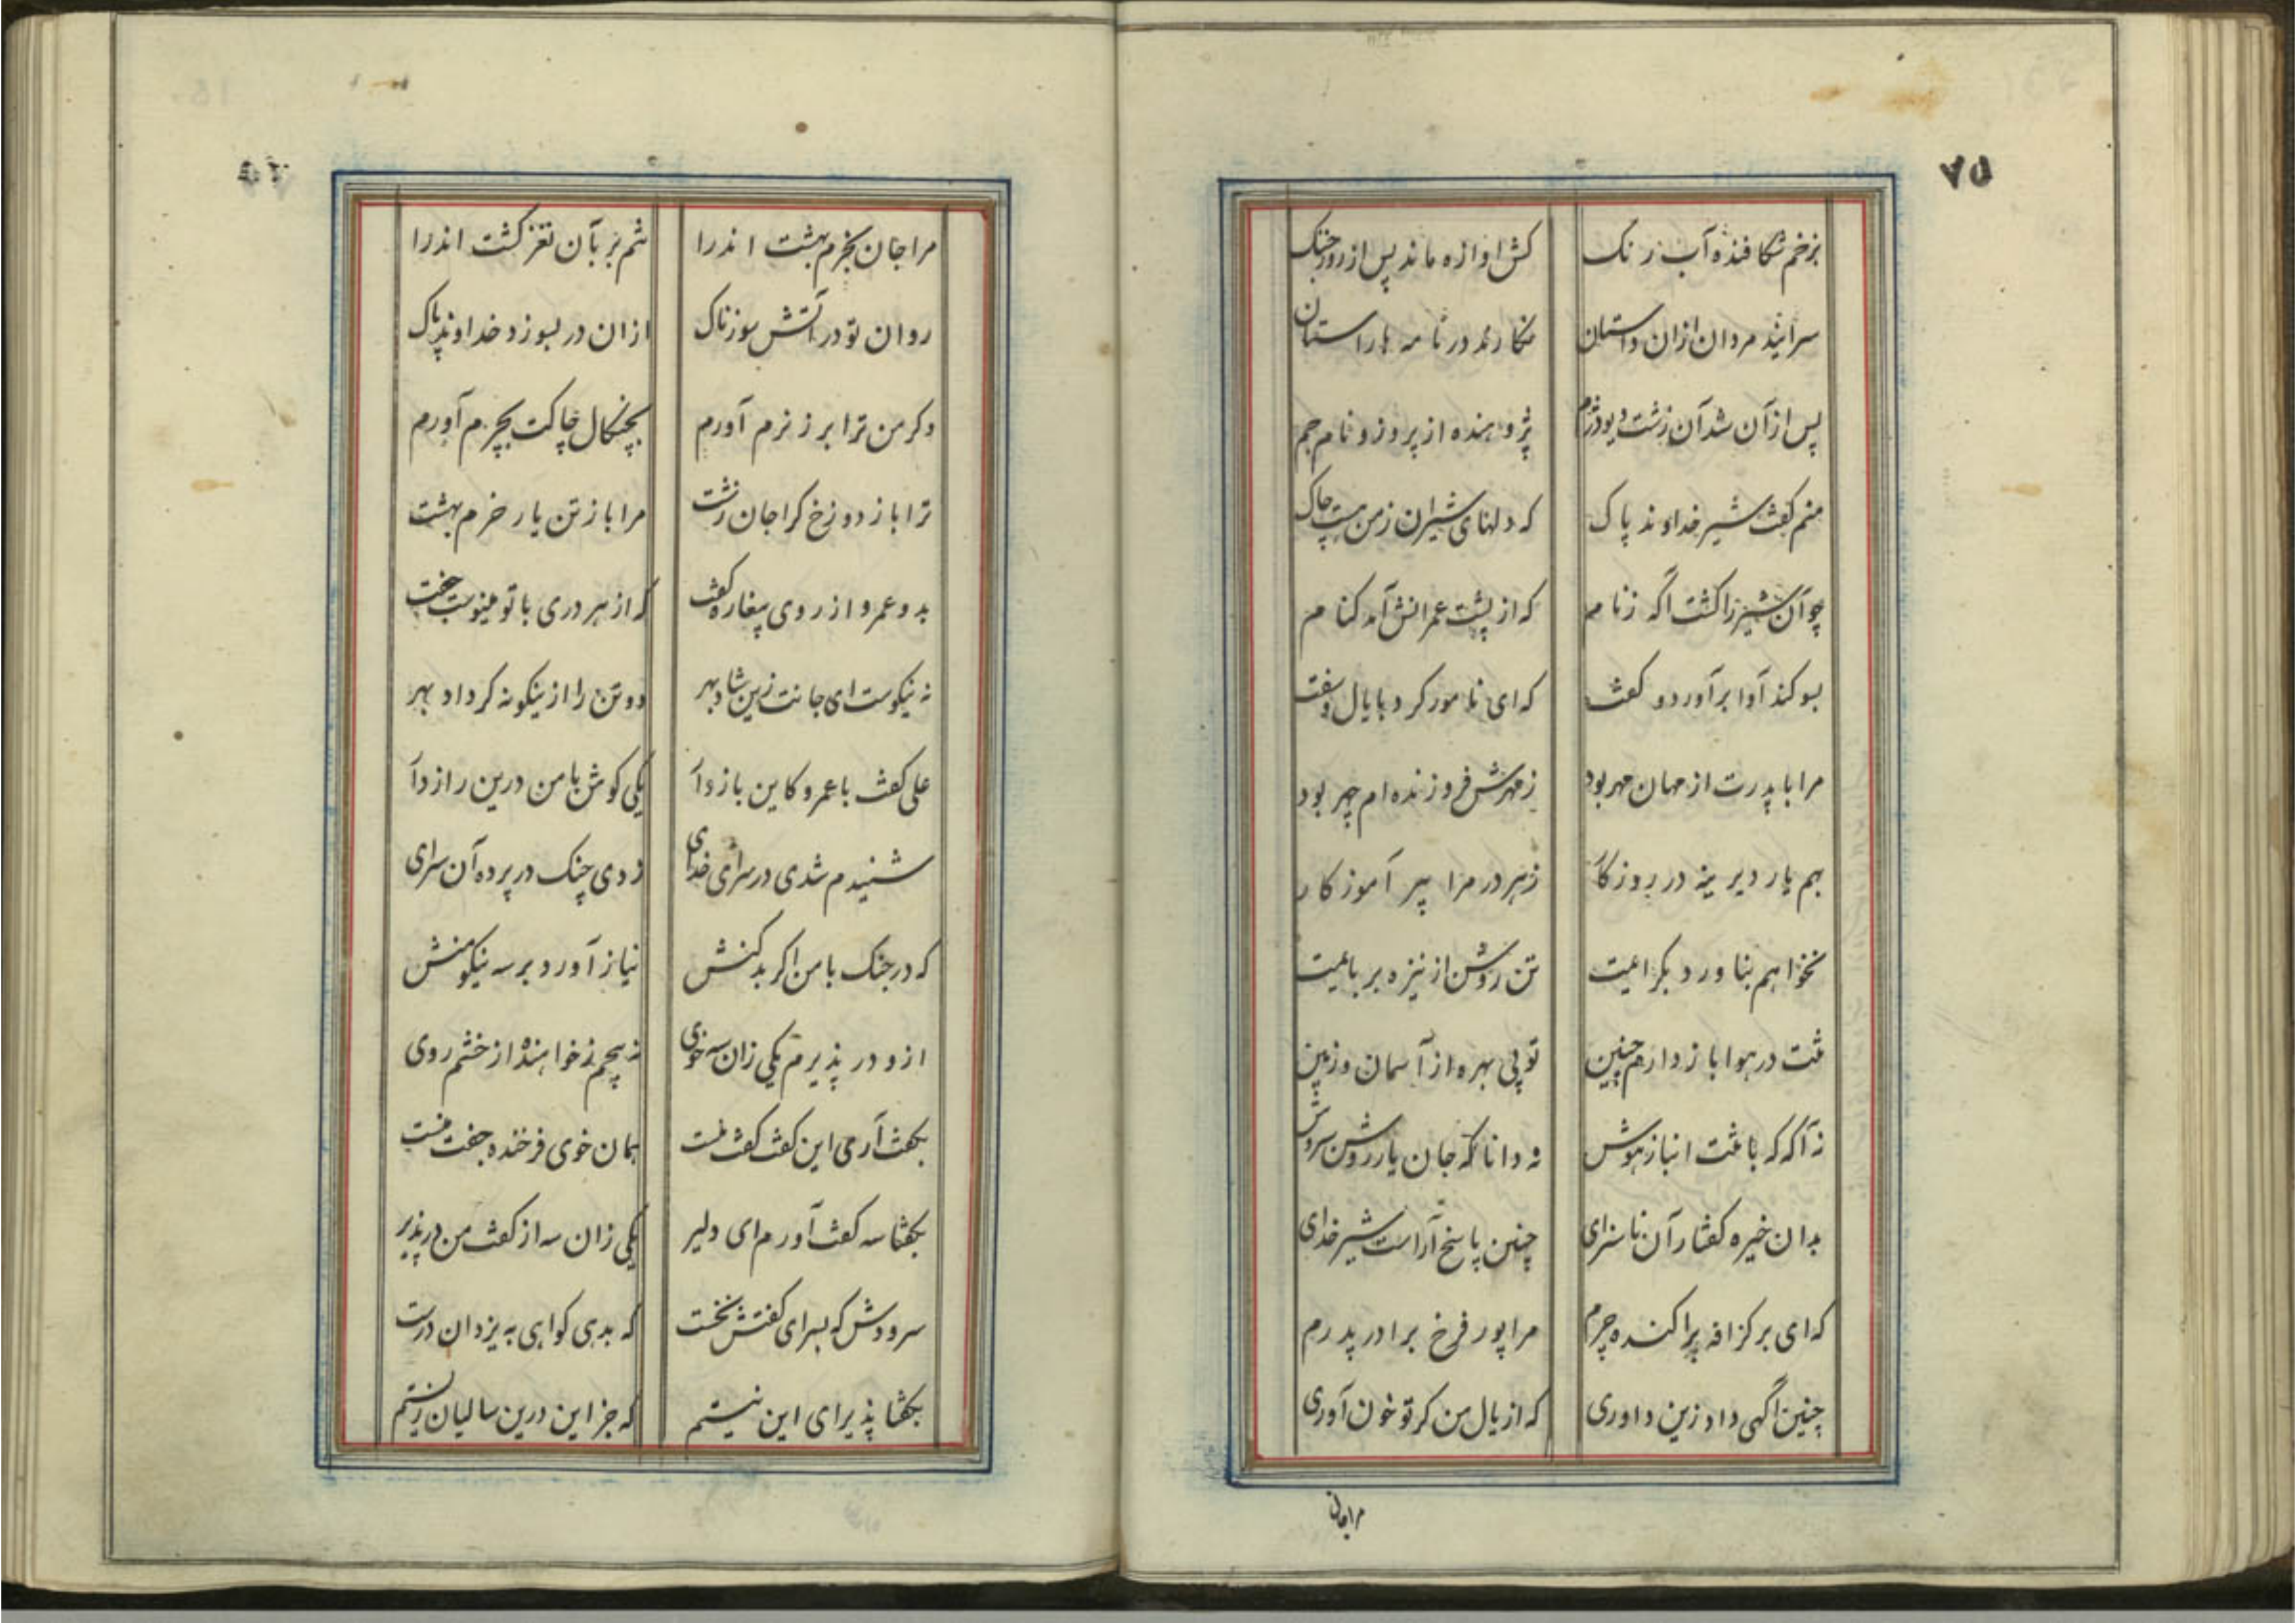 ۷۵
بزخم شکافنده آب رنک کش اوازه ماند پس از روز جنک
سرایند مردان ازان داستان نکارند در نامه باراستان
پس از آن شد آن زشت دیو دژم پژوهنده از پروز و نام جم
منم کفت شیر خداوند پاک که دلهای شیران ز من هست چاک
چو آن شیر را کشت اکه ز نام که از پشت عمرانش آمد کنام
بسوکند آوا برآورد و کفت که ای نامور کرد با یال و سفت
مرا با پدرت از مهان مهر بود ز مهرش فروزنده ام چهر بود
بهم یار دیرینه در روزکار ز هر در مرا پیر آموزکار
نخواهم بناورد بکرایمت تن روشن از نیزه بربایمت
تنت در هوا باز دارم چنین تو بی بهره از آسمان و زمین
نه آکه که با تنت انباز هوش نه دانا که جان یار روشن سروش
بدان خیره کفتار آن ناسزای چنین پاسخ آراست شیر خدای
که ای بر کزافه پراکنده چرم مرا پور فرخ برادر پدرم
چنین آکهی داد زین داوری که از یال من کر تو خون آوری
مرا جان
مرا جان بخرم بهشت اندرا شم بر بآن نغز کشت اندرا
روان تو در آتش سوزناک ازان در بسوزد خداوند پاک
وکر من ترا بر ز نرم آورم بچنکال چاکت بچرم آورم
ترا باز دوزخ کرا جان زشت مرا باز تن یار خرم بهشت
بدو عمرو از روی پیغاره کفت که از هر دری با تو مینوست جفت
نه نیکوست ای جانت زین شاد بهر دو تن را ازینکونه کرداد بهر
علی کفت با عمرو کاین باز دآ یکی کوش با من درین راز دآ
شنیدم شدی در سرای خدای زدی چنک در پرده آن سرای
که در جنک با من اکر بد کنش نیاز آورد بر سه نیکو منش
ازو در پذیرم یکی زان سه خوی نه پیچم ز خواهنده از خشم روی
بکفت آرمی این کفت کفت منست همان خوی فرخنده جفت منست
بکفتا سه کفت آورم ای دلیر یکی زان سه از کفت من در پذیر
سرودش که بسرای کفتش نخست که بدی کواهی به یزدان درست
بکفتا پذیرای این نیستم که جز این درین سالیان زیستم